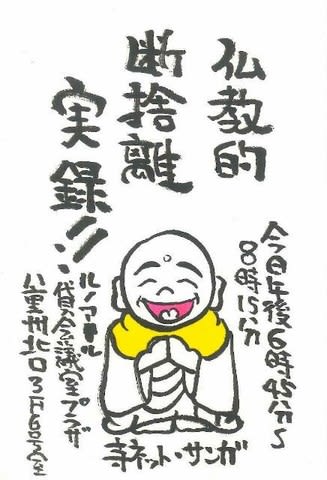 仏教的
断捨離
実録!!
今日午後6時45分～
8時15分
ルノアール
貸会議室プラザ
八重州北口3F6号室
寺ネット・サンガ